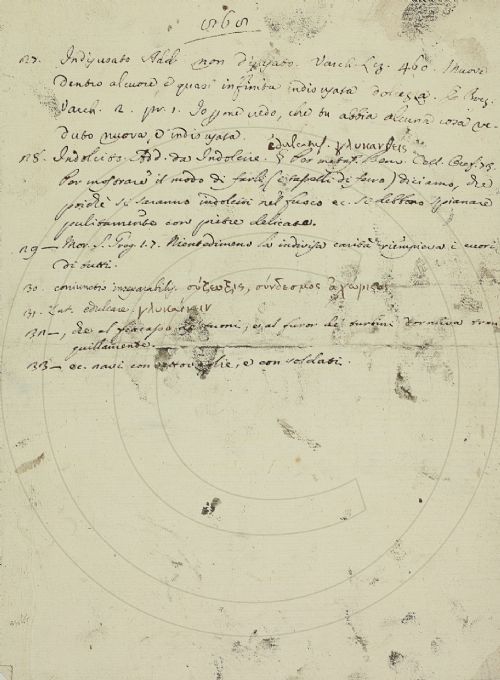 127. Indivisato Add. non divisato. Varch. Lez. 460. Muove
dentro al cuore e quasi infinita indivisata dolcezza.
Varch. 2. pr. 1. Io vedo, che tu abbia alcuna cosa ve-
duto nuova, e indivisata.
edulcatus. γλυκανθείς
128. Indolcito. Add. da Indolcire. § Per metaf. Benv. Cell. Oref.
Per mostrare il modo di farlo (i di ferro) diciamo, che
poichè si saranno indolciti nel fuoco ec. si debbono spianare
pulitamente con pietre delicate.
129 — Mor. S. Greg. 1. 7. Nientedimeno la indivisa carità riempieva i cuori
di tutti.
130. coniunctio inseparabilis. σύζευξις, σύνδεσμος ἀχώριστος
131. Lat. edulcare. γλυκαίνειν
132 —, che al fracasso de' tuoni, e al furor de' turbini dormiva tran
quillamente.
133 — ec. navi con vettovaglie, e con soldati.